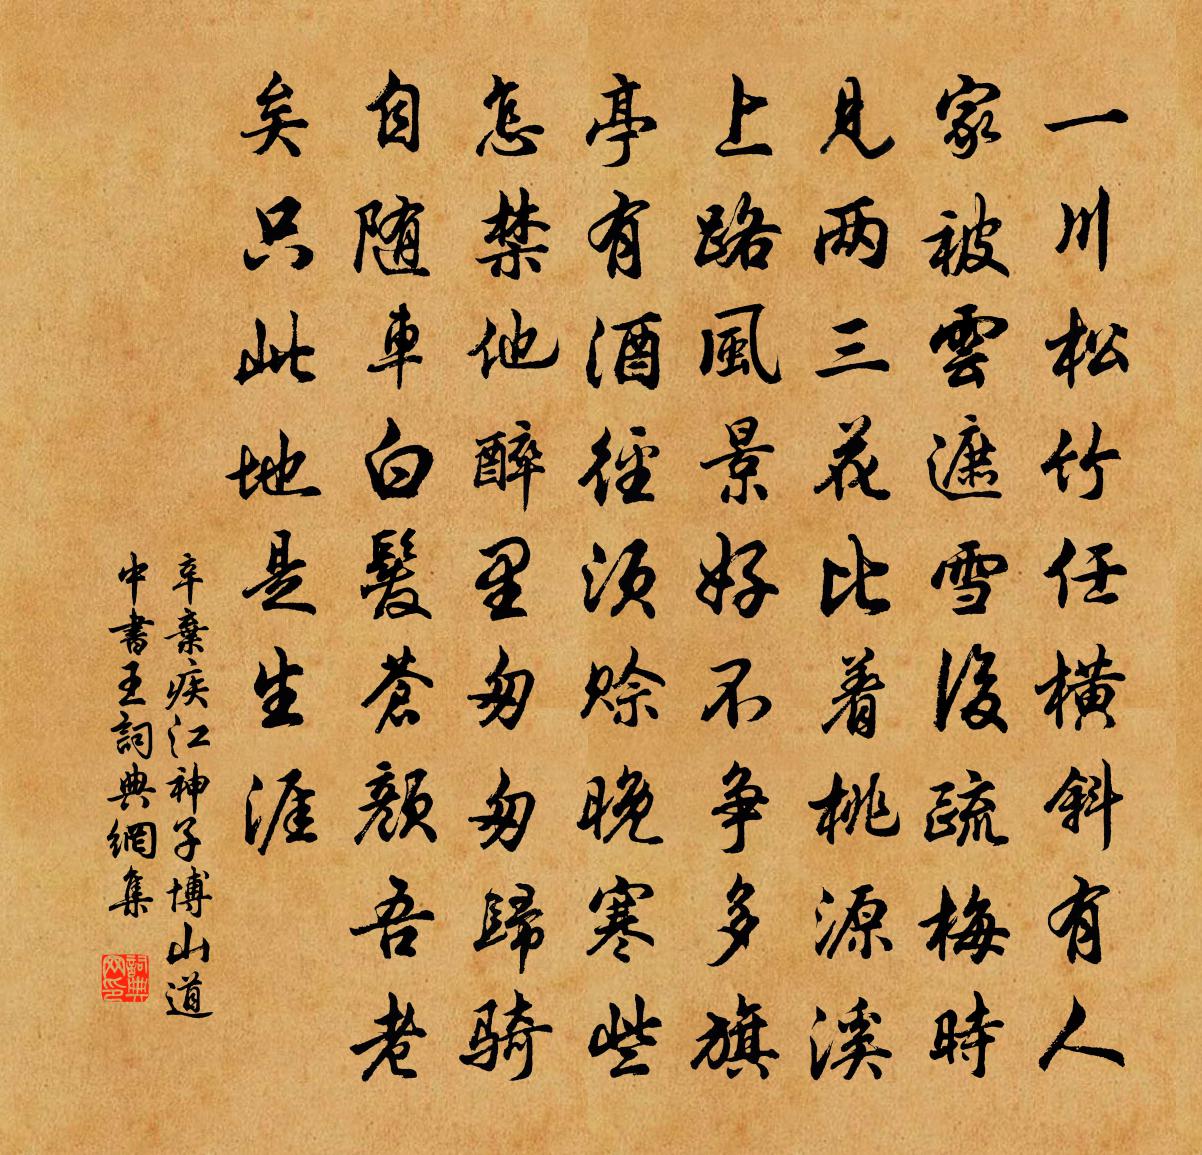 一川松竹任横斜有人
家被雲遮雪後疏梅時
見两三花比着桃源溪
上路風景好不争多旗
亭有酒徑須賒晚寒些
怎禁他醉里匆匆歸騎
自随車白髮蒼顏吾老
矣只此地是生涯
辛棄疾江神子博山道
中書王詞典網集
詞典
网印